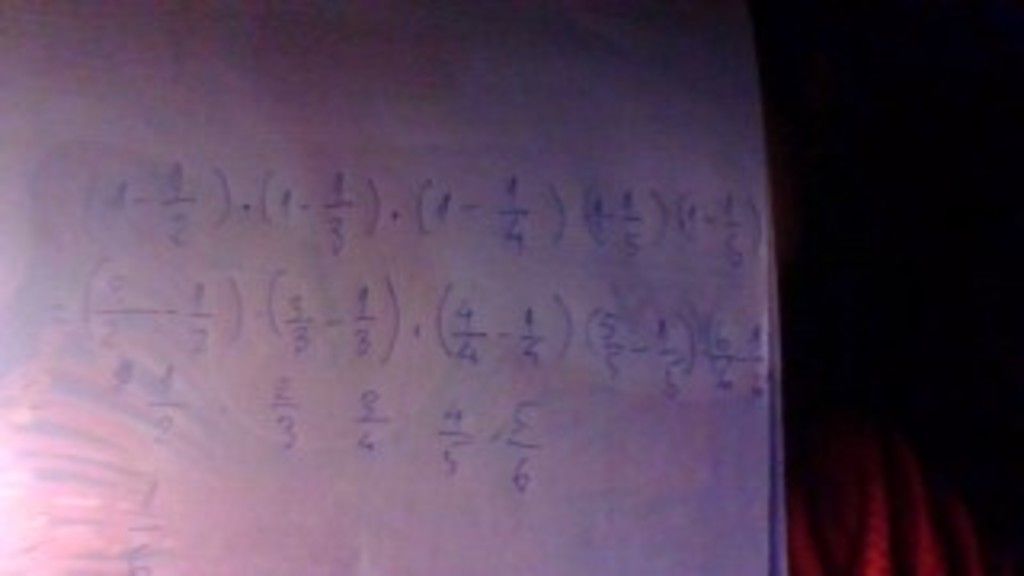 (1 - 1/2) · (1 - 1/3) · (1 - 1/4) (1 - 1/5) (1 - 1/6)
= ( - 1/2) · (3/3 - 1/3) · (4/4 - 1/4) (5/5 - 1/5) (6/6 - 1/6
1/2 2/3 3/4 4/5 · 5/6
1/6